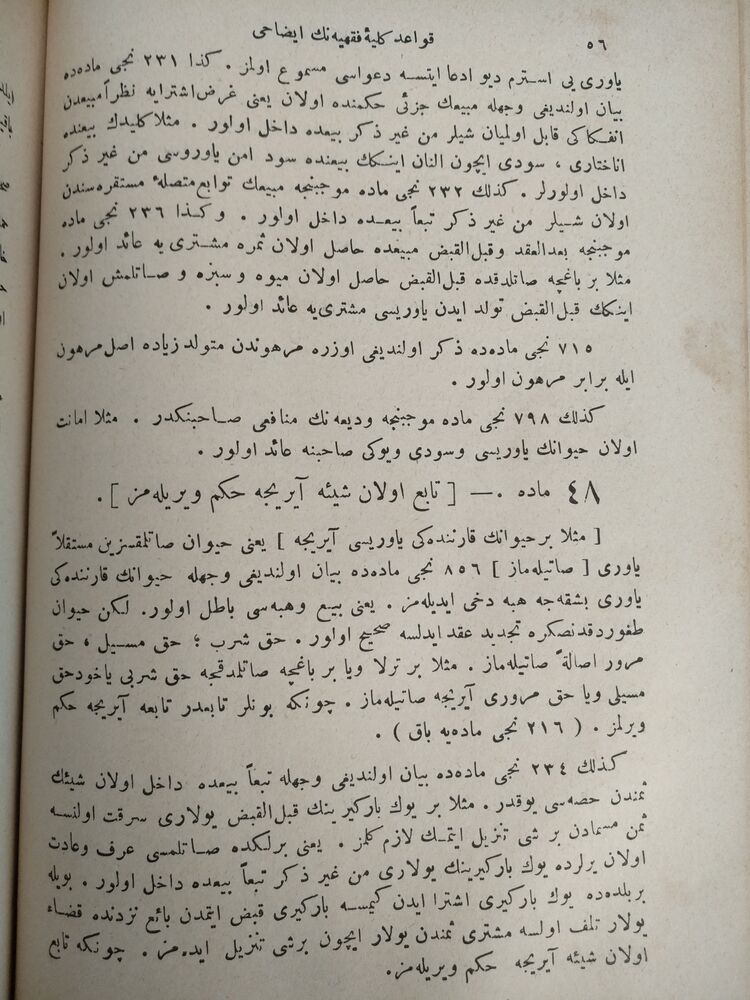 ٥٦
قواعد كليۀ فقهيه‌نك ايضاحى
ياورى يى استرم ديو ادعا ايتسه دعواسى مسموع اولمز . كذا ٢٣١ نجى ماده‌ده
بيان اولنديغى وجهله مبيعك جزئى حكمنده اولان يعنى غرض اشترايه نظراً مبيعدن
انفكاكى قابل اولميان شيلر من غير ذكر بيعده داخل اولور . مثلا كليدك بيعنده
اناختارى ، سودى ايچون النان اينكك بيعنده سود امن ياوروسى من غير ذكر
داخل اولورلر . كذلك ٢٣٢ نجى ماده موجبنجه مبيعك توابع متصلۀ مستقره‌سندن
اولان شيلر من غير ذكر تبعاً بيعده داخل اولور . وكذا ٢٣٦ نجى ماده
موجبنجه بعدالعقد وقبل‌القبض مبيعده حاصل اولان ثمره مشترى‌يه عائد اولور .
مثلا بر باغچه صاتلدقده قبل‌القبض حاصل اولان ميوه و سبزه و صاتلمش اولان
اينكك قبل‌القبض تولد ايدن ياوريسى مشترى‌يه عائد اولور .
٧١٥ نجى ماده‌ده ذكر اولنديغى اوزره مرهوندن متولد زياده اصل مرهون
ايله برابر مرهون اولور .
كذلك ٧٩٨ نجى ماده موجبنجه وديعه‌نك منافعى صاحبنكدر . مثلا امانت
اولان حيوانك ياوريسى وسودى ويوكى صاحبنه عائد اولور .
٤٨ ماده .— [ تابع اولان شيئه آيريجه حكم ويريله‌مز ] .
[ مثلا بر حيوانك قارننده‌كى ياوريسى آيريجه ] يعنى حيوان صاتلمقسزين مستقلاً
ياورى [ صاتيله‌ماز ] ٨٥٦ نجى ماده‌ده بيان اولنديغى وجهله حيوانك قارننده‌كى
ياورى بشقه‌جه هبه دخى ايديله‌مز . يعنى بيع وهبه‌سى باطل اولور . لكن حيوان
طغوردقدنصكره تجديد عقد ايدلسه صحيح اولور . حق شرب ؛ حق مسيل ، حق
مرور اصالةً صاتيله‌ماز . مثلا بر ترلا ويا بر باغچه صاتلمدقجه حق شربى ياخود حق
مسيلى ويا حق مرورى آيريجه صاتيله‌ماز . چونكه بونلر تابعدر تابعه آيريجه حكم
ويرلمز . ( ٢١٦ نجى ماده‌يه باق ) .
كذلك ٢٣٤ نجى ماده‌ده بيان اولنديغى وجهله تبعاً بيعده داخل اولان شيئك
ثمندن حصه‌سى يوقدر . مثلا بر يوك باركيرينك قبل‌القبض يولارى سرقت اولنسه
ثمن مسمادن بر شى تنزيل ايتمك لازم كلمز . يعنى برلكده صاتلمسى عرف وعادت
اولان يرلرده يوك باركيرينك يولارى من غير ذكر تبعاً بيعده داخل اولور . بويله
بر بلده‌ده يوك باركيرى اشترا ايدن كيمسه باركيرى قبض ايتمدن بائع نزدنده قضاء
يولار تلف اولسه مشترى ثمندن يولار ايچون برشى تنزيل ايده‌مز . چونكه تابع
اولان شيئه آيريجه حكم ويريله‌مز.